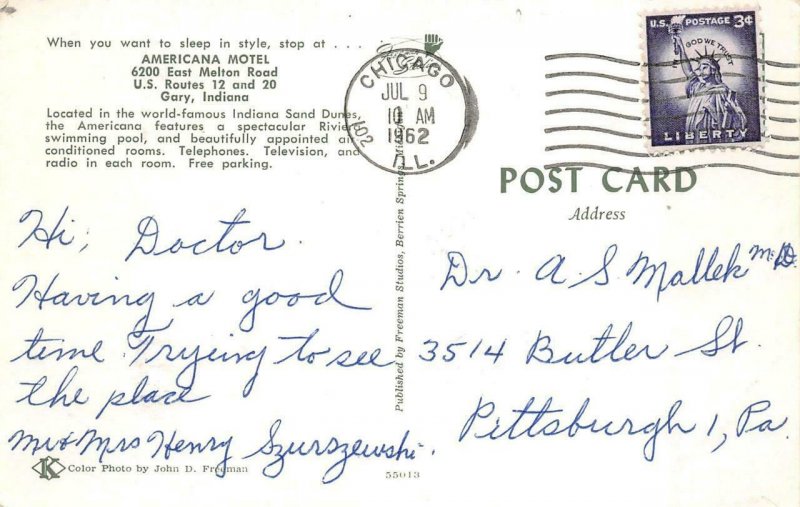 When you want to sleep in style, stop at . . . .
AMERICANA MOTEL
6200 East Melton Road
U.S. Routes 12 and 20
Gary, Indiana
Located in the world-famous Indiana Sand Dunes,
the Americana features a spectacular Riviera
swimming pool, and beautifully appointed air
conditioned rooms. Telephones. Television, and
radio in each room. Free parking.
CHICAGO
JUL 9
10 AM
1962
ILL.
U.S. POSTAGE 3¢
IN GOD WE TRUST
LIBERTY
POST CARD
Address
Hi, Doctor.
Having a good
time. Trying to see
the place
Mr & Mrs Henry Szurszewski.
Dr. A S Mallek M.D.
3514 Butler St.
Pittsburgh 1, Pa.
Published by Freeman Studios, Berrien Springs,
K Color Photo by John D. Freeman
55013